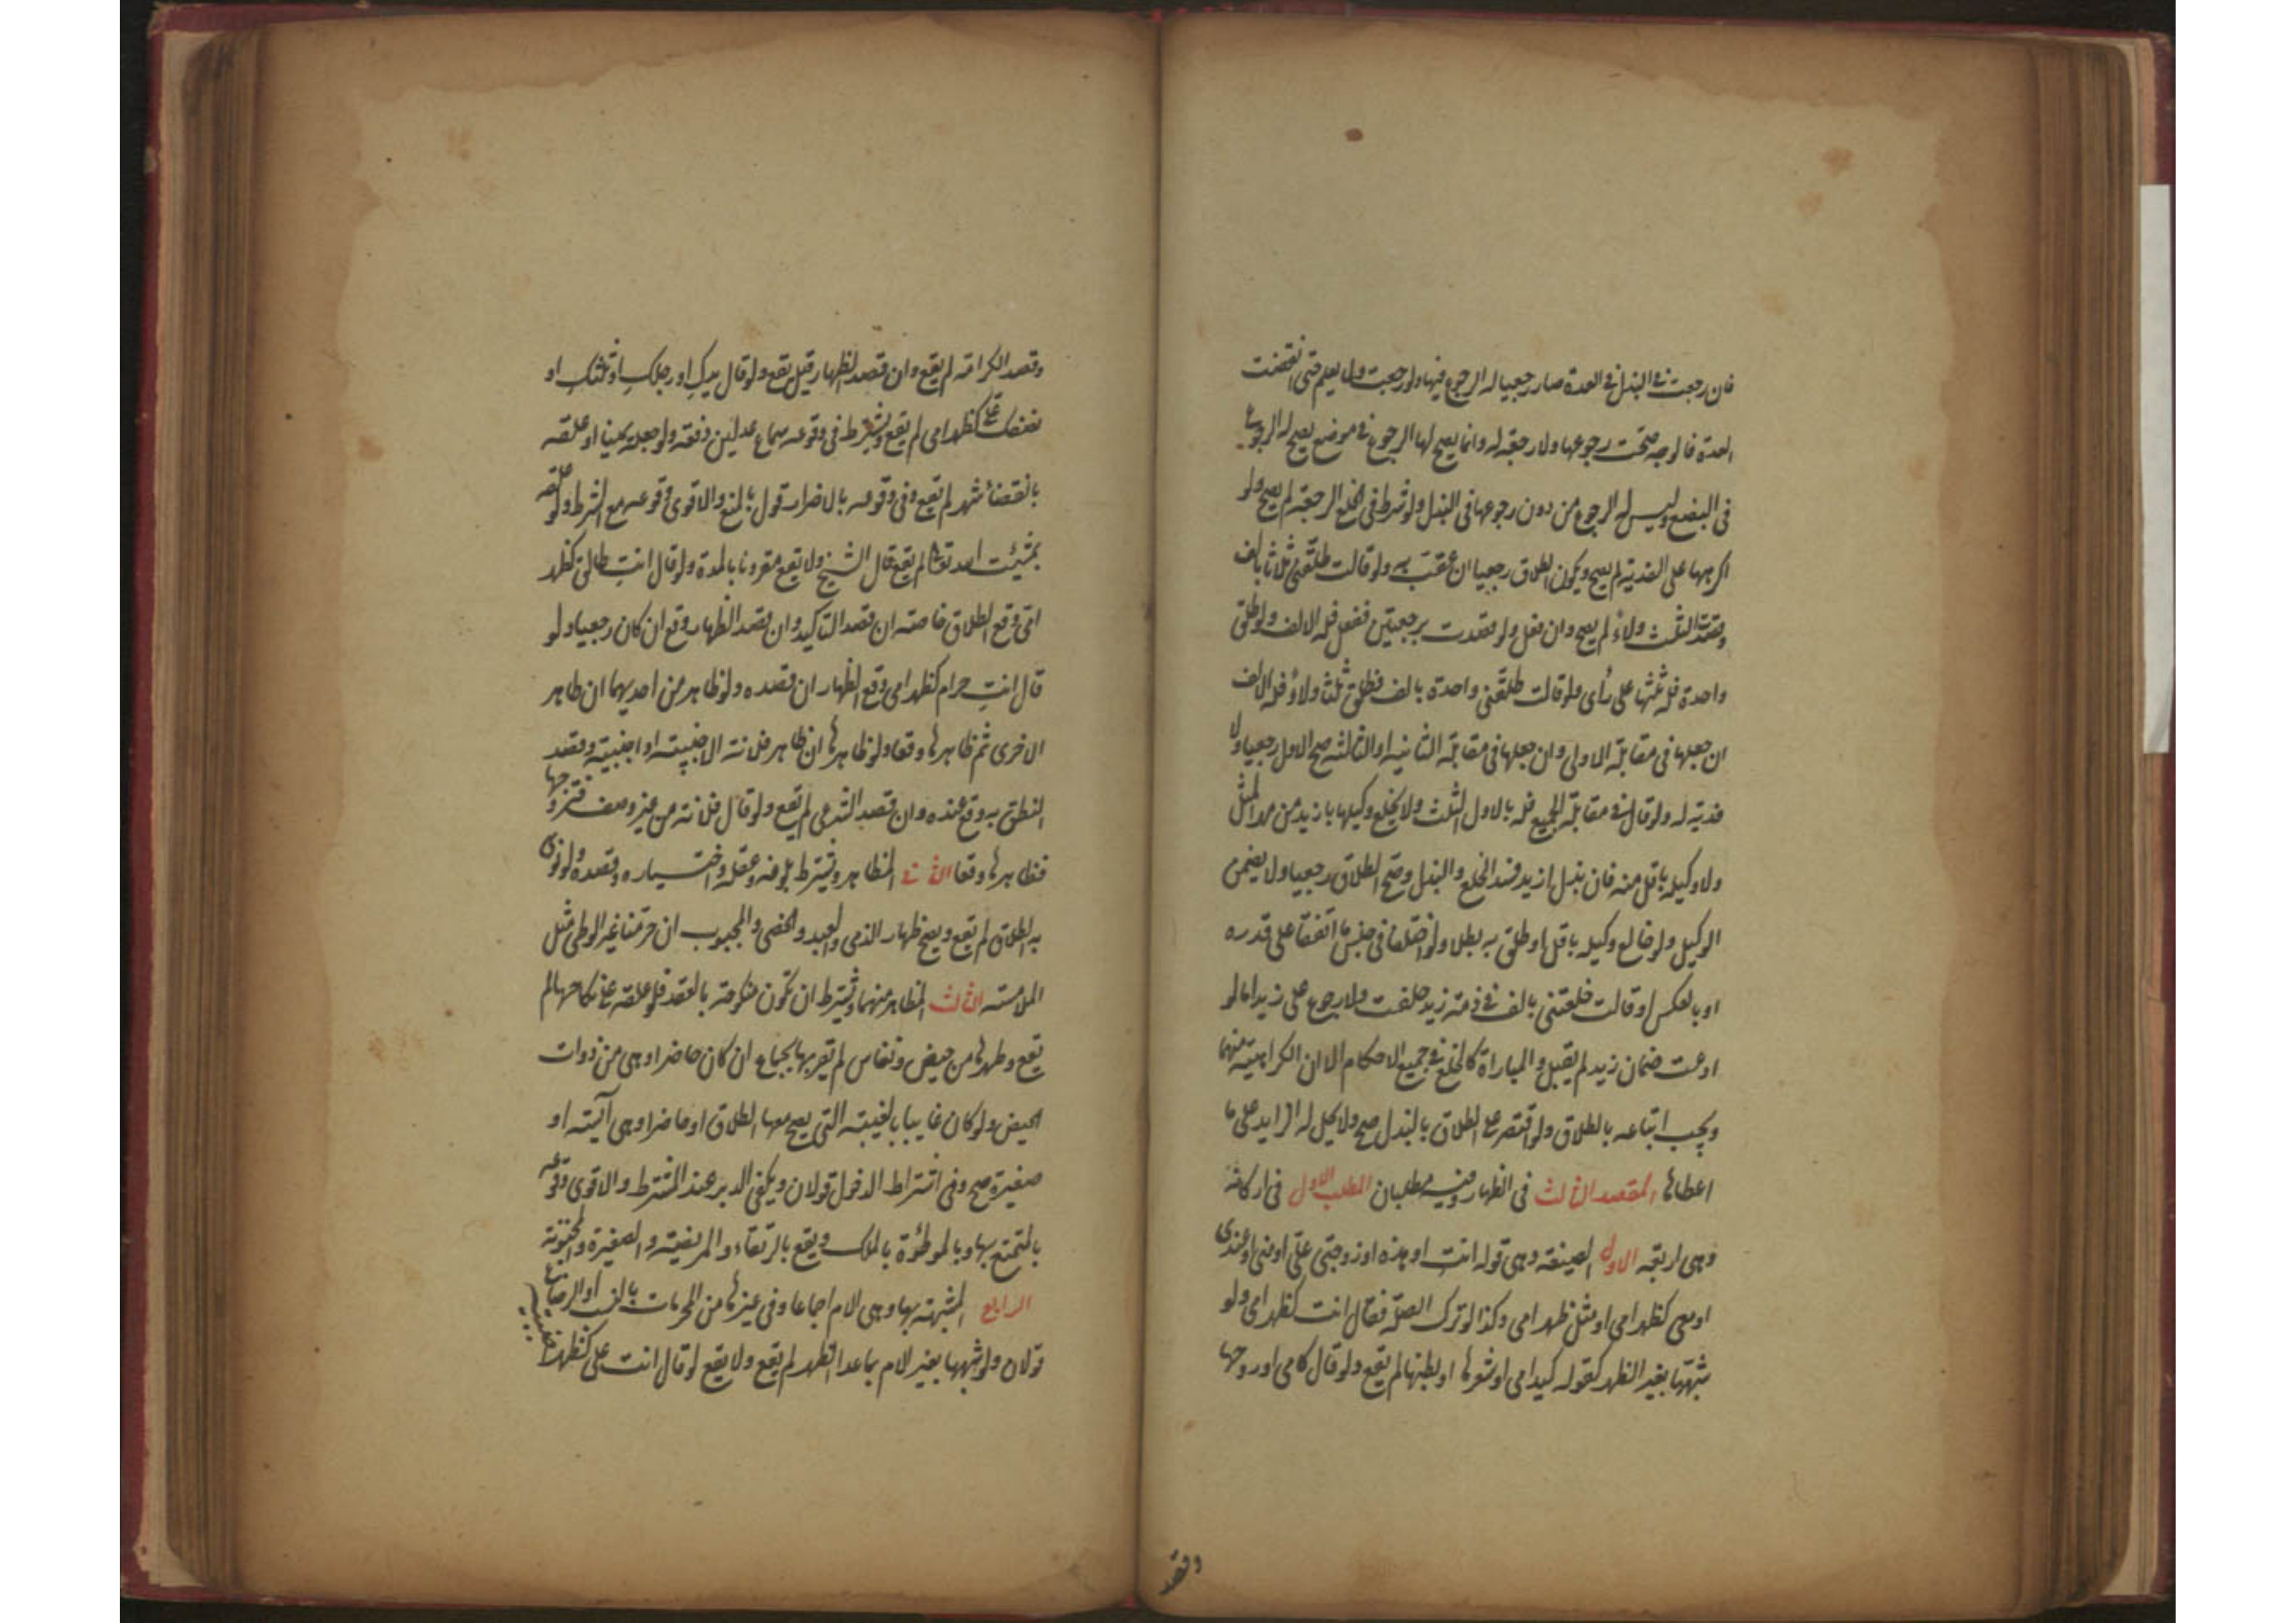 فان رجعت في البذل في العدة صار رجعيا له الرجوع فيها ولو رجعت ولم يعلم حتى انقضت
العدة فالوجه صحت رجوعها ولا رجعة له وانما يصح لها الرجوع في موضع يصح له الرجوع
في البضع وليس له الرجوع من دون رجوعها في البذل ولو شرط في الخلع الرجعة لم يصح ولو
اكرهها على الفدية لم يصح ويكون الطلاق رجعيا ان عقب به ولو قالت طلقني ثلاثا بالف
وقصدت الثلث ولاء لم يصح وان فعل ولو قصدت برجعتين ففعل فله الالف ولو طلق
واحدة فله ثلثها على رأى ولو قالت طلقني واحدة بالف فطلق ثلثا ولاء فله الالف
ان جعلها في مقابلة الاولى وان جعلها في مقابلة الثانية او الثالثة صح الاول رجعيا ولا
فدية له ولو قال في مقابلة الجميع فله بالاول الثلث ولا يخلع وكيلها بازيد من مهر المثل
ولا وكيله باقل منه فان بذل ازيد فسد الخلع والبذل وصح الطلاق رجعيا ولا يضمن
الوكيل ولو خالع وكيله باقل او طلق به بطلا ولو اختلفا في جنس ما اتفقا على قدره
او بالعكس او قالت خلعتني بالف في ذمة زيد حلفت ولا رجوع على زيد اما لو
ادعت ضمان زيد لم يقبل والمباراة كالخلع في جميع الاحكام الا ان الكراهية منهما
ويجب اتباعه بالطلاق ولو اقتصر على الطلاق بالبذل صح ولا يحل له الزايد على ما
اعطاها المقصد الثالث في الظهار وفيه مطلبان المطلب الاول في اركانه
وهى اربعة الاول الصيغة وهى قوله انت او هذه او زوجتى علىّ او منى او عندى
او معى كظهر امى او مثل ظهر امى وكذا لو ترك الصلة فقال انت كظهر امى ولو
شبهها بغير الظهر كقوله كيد امى او شعرها او بطنها لم يقع ولو قال كامى او روحها
وقصد
وقصد الكرامة لم يقع وان قصد الظهار قيل يقع ولو قال يدكِ او رجلكِ او ثلثكِ او
نصفك علىّ كظهر امى لم يقع ويشترط في وقوعه سماع عدلين دفعة ولو جعله يمينا او علقه
بانقضاء شهر لم يقع وفي وقوعه بالاضرار قول بالمنع والاقوى وقوعه مع الشرط ولو علقه
بمشيئت الله تعالى لم يقع قال الشيخ ولا يقع مقرونا بالمدة ولو قال انتِ طالق كظهر
امى وقع الطلاق خاصة ان قصد التاكيد وان قصد الظهار وقع ان كان رجعيا ولو
قال انتِ حرام كظهر امى وقع الظهار ان قصده ولو ظاهر من احديهما ان ظاهر
الاخرى ثم ظاهرها وقعا ولو ظاهرها ان ظاهر فلانة الاجنبية او اجنبية وقصد
النطق به وقع عنده وان قصد الشرعى لم يقع ولو قال فلانة من غير وصف فتزوجها
فظاهرها وقعا الثانى المظاهر ويشترط بلوغه وعقله واختياره وقصده ولو نوى
به الطلاق لم يقع ويصح ظهار الذمى والعبد والخصى والمجبوب ان حرمنا غير الوطى مثل
الملامسة الثالث المظاهر منها ويشترط ان تكون منكوحة بالعقد فلو علقه على نكاحها لم
يقع وطهرها من حيض ونفاس لم يقربها بجماع ان كان حاضرا وهى من ذوات
الحيض ولو كان غايبا بالغيبة التى يصح معها الطلاق او حاضرا وهى آيسة او
صغيرة صح وفى اشتراط الدخول قولان ويكفى الدبر عند المشترط والاقوى وقوعه
بالمتمتع بها وبالموطؤة بالملك ويقع بالرتقاء والمريضة والصغيرة والمجنونة
الرابع المشبهة بها وهى الام اجماعا وفى غيرها من المحرمات بالنسب او الرضاع
قولان ولو شبهها بغير الام بما عدا الظهر لم يقع ولا يقع لو قال انت على كظهر